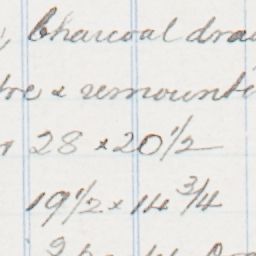 Charcoal dra
re & remounti
28 x 20 1/2
19 1/2 x 14 3/4